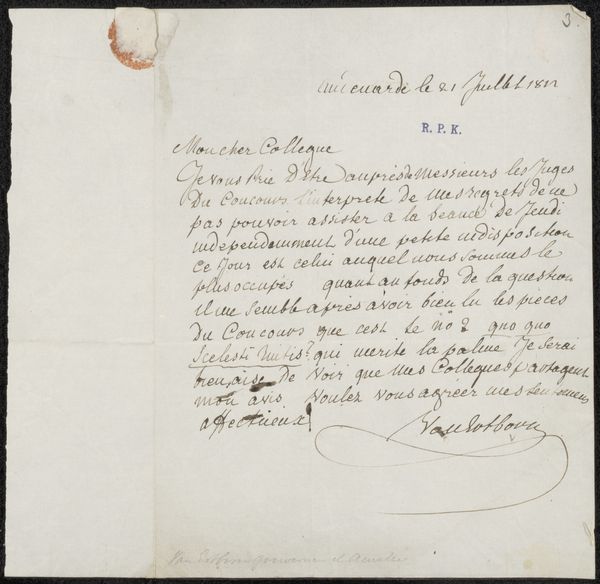 3
le 21 Juillet 18
R. P. K.
Mon cher Collegue
Je vous Prie D'être auprès de Messieurs les Juges
Du Concours l'interprete de mes regrets de ne
pas pouvoir assister a la seance de Jeudi
independemment d'une petite indisposition
ce Jour est celui auquel nous sommes le
plus occupés quant au fonds de la question
il me semble après avoir bien lu les pieces
Du Concours que c'est le no 2 quo quo
Scelesti Ruitis? qui merite la palme Je serai
bien aise de voir que mes Collegues partagent
mon avis Voulez vous agréer mes sentimens
affectueux
Van Ertborn
Van Ertborn